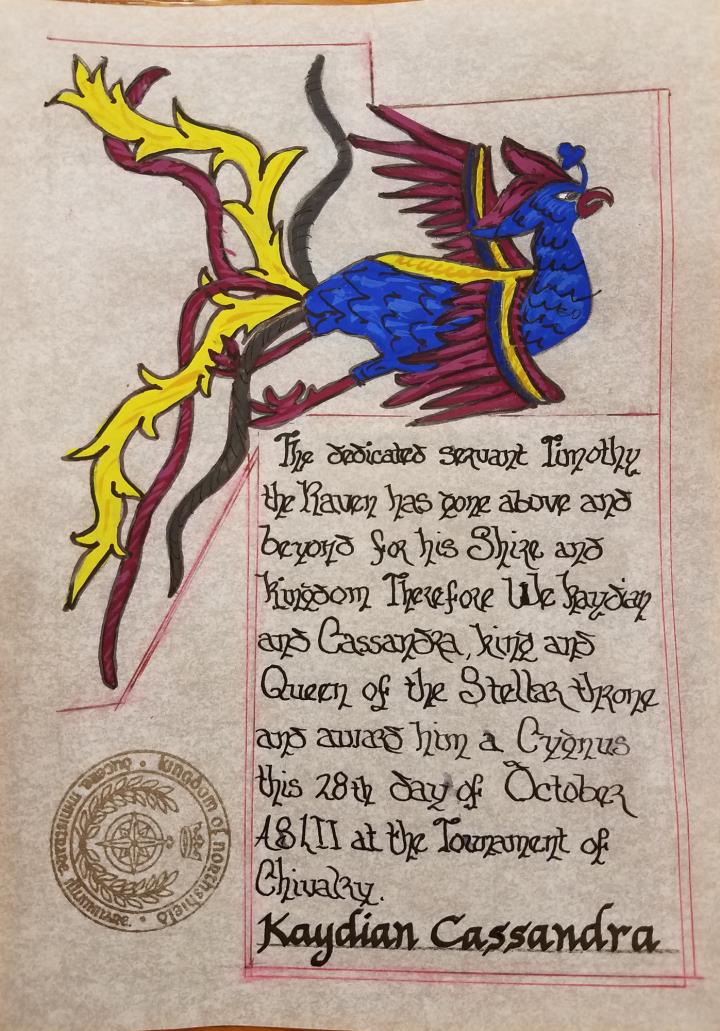 The dedicated servant Timothy
the Raven has gone above and
beyond for his Shire and
kingdom Therefore We kaydian
and Cassandra, king and
Queen of the Stellar throne
and award him a Cygnus
this 28th day of October
ASLII at the Tournament of
Chivalry.
Kaydian Cassandra
kingdom of northshield
ducere ministrare illuminare.